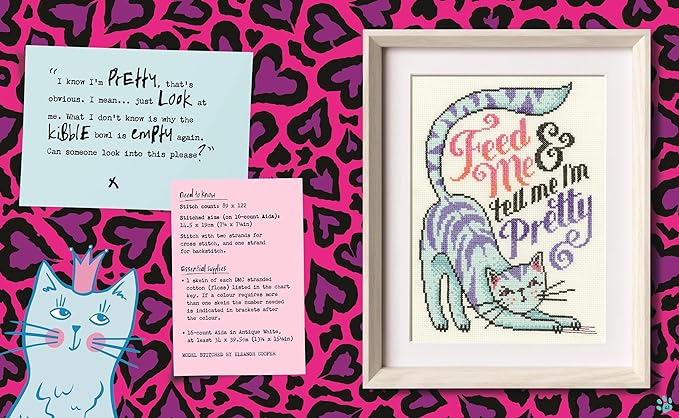 “I know I'm PrETTy, that's
obvious. I mean... just LOOK at
me. What I don't know is why the
KiBBLE bowl is EMPTY again.
Can someone look into this please?”
x
Need to know
Stitch count: 89 x 122
Stitched size (on 16-count Aida):
14.5 x 19cm (7¼ x 7½in)
Stitch with two strands for
cross stitch, and one strand
for backstitch.
Essential supplies
• 1 skein of each DMC stranded
cotton (floss) listed in the chart
key. If a colour requires more
than one skein the number needed
is indicated in brackets after
the colour.
• 16-count Aida in Antique White,
at least 34 x 39.5cm (13¼ x 15½in)
MODEL STITCHED BY ELEANOR COOPER
Feed
Me &
tell me I'm
Pretty